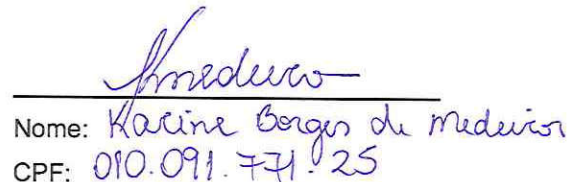 Kmedeiros
Nome: Karine Borges de Medeiros
CPF: 010.091.771-25